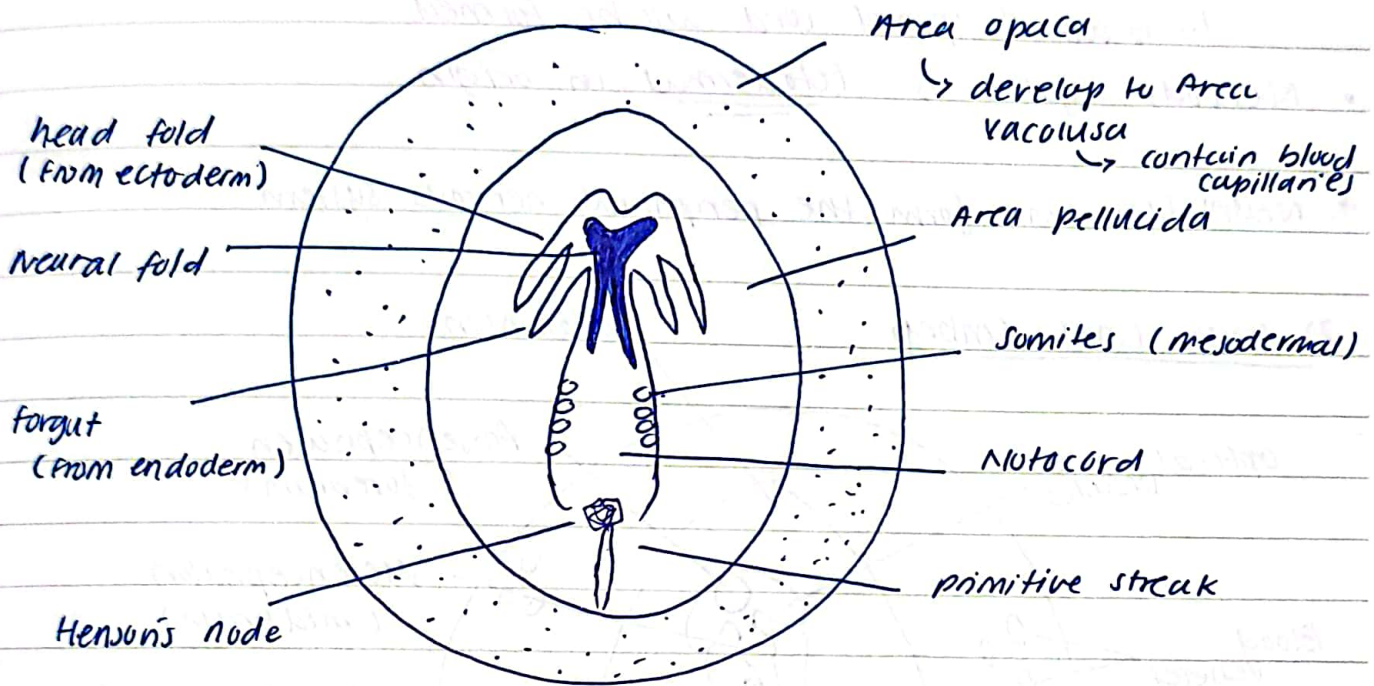 Area opaca
↳ develop to Area
vacolusa
↳ contain blood
capillaries
head fold
(from ectoderm)
Area pellucida
Neural fold
Somites (mesodermal)
forgut
(from endoderm)
Notocord
primitive streak
Henson's node